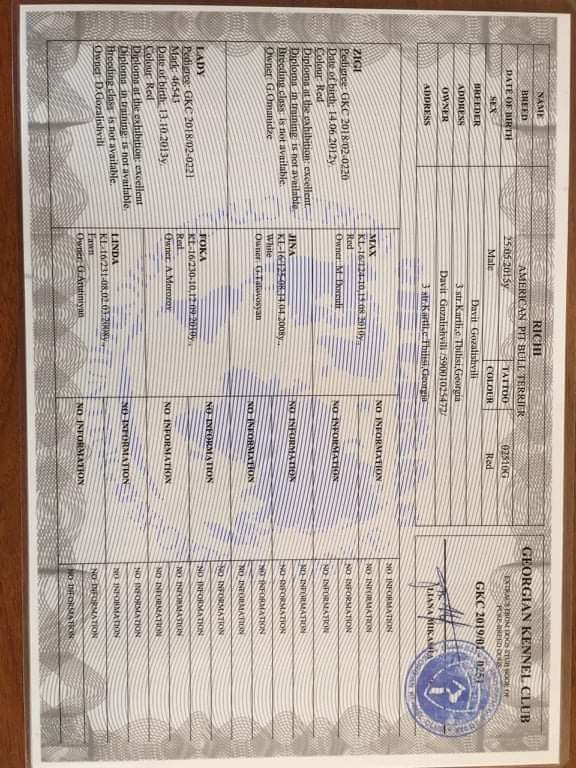 NAME RICHI
BREED AMERICAN PIT BULL TERRIER
DATE OF BIRTH 25.05.2015y TATTOO 02510G
SEX Male COLOUR Red
BREEDER Davit Gozalishvili
ADDRESS 3 str.Kartli,c.Tbilisi,Georgia
OWNER Davit Gozalishvili /59001025472/
ADDRESS 3 str.Kartli,c.Tbilisi,Georgia
GEORGIAN KENNEL CLUB
EXTRACT FROM DOGS STUB BOOK OF
PURE-BREED DOGS
GKC 2019/01 - 0251
LIANA MIKASHA
ZIGI
Pedigree: GKC 2018/02-0220
Date of birth: 14.06.2012y.
Colour: Red
Diploma at the exhibition: excellent.
Diploma in training: is not available.
Breeding class: is not available.
Owner: G.Omanidze
LADY
Pedigree: GKC 2018/02-0221
Mark: 46543
Date of birth: 13.10.2013y.
Colour: Red
Diploma at the exhibition: excellent
Diploma in training: is not available.
Breeding class: is not available.
Owner: D.Gozalishvili
MAX
KL-16/124-10,15.08.2010y.,
Red
Owner: M.
JINA
White
Owner: G.Tatevosyan
FOKA
KL-16/230-10,12.09.2010y.,
Red
Owner: A.Morozov
LINDA
KL-16/231-08,02.03.2008y.,
Fawn
Owner: G.
NO INFORMATION
NO INFORMATION
NO INFORMATION
NO INFORMATION
NO INFORMATION
NO INFORMATION
NO INFORMATION
NO INFORMATION
NO INFORMATION
NO INFORMATION
NO INFORMATION
NO INFORMATION
NO INFORMATION
NO INFORMATION
NO INFORMATION
NO INFORMATION
NO INFORMATION
NO INFORMATION
NO INFORMATION
NO INFORMATION
NO INFORMATION
NO INFORMATION
NO INFORMATION
NO INFORMATION